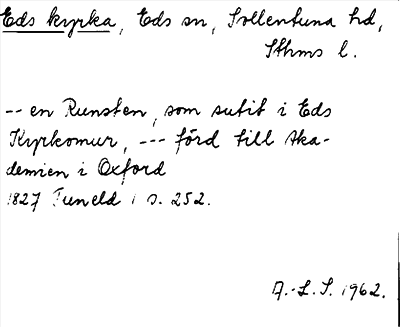 Eds kyrka, Eds sn, Sollentuna hd,
Sthms l.
-- en Runsten, som sutit i Eds
Kyrkomur, --- förd till Aka-
demien i Oxford
1827 Tuneld 1 s. 252.
A.-L.S. 1962.